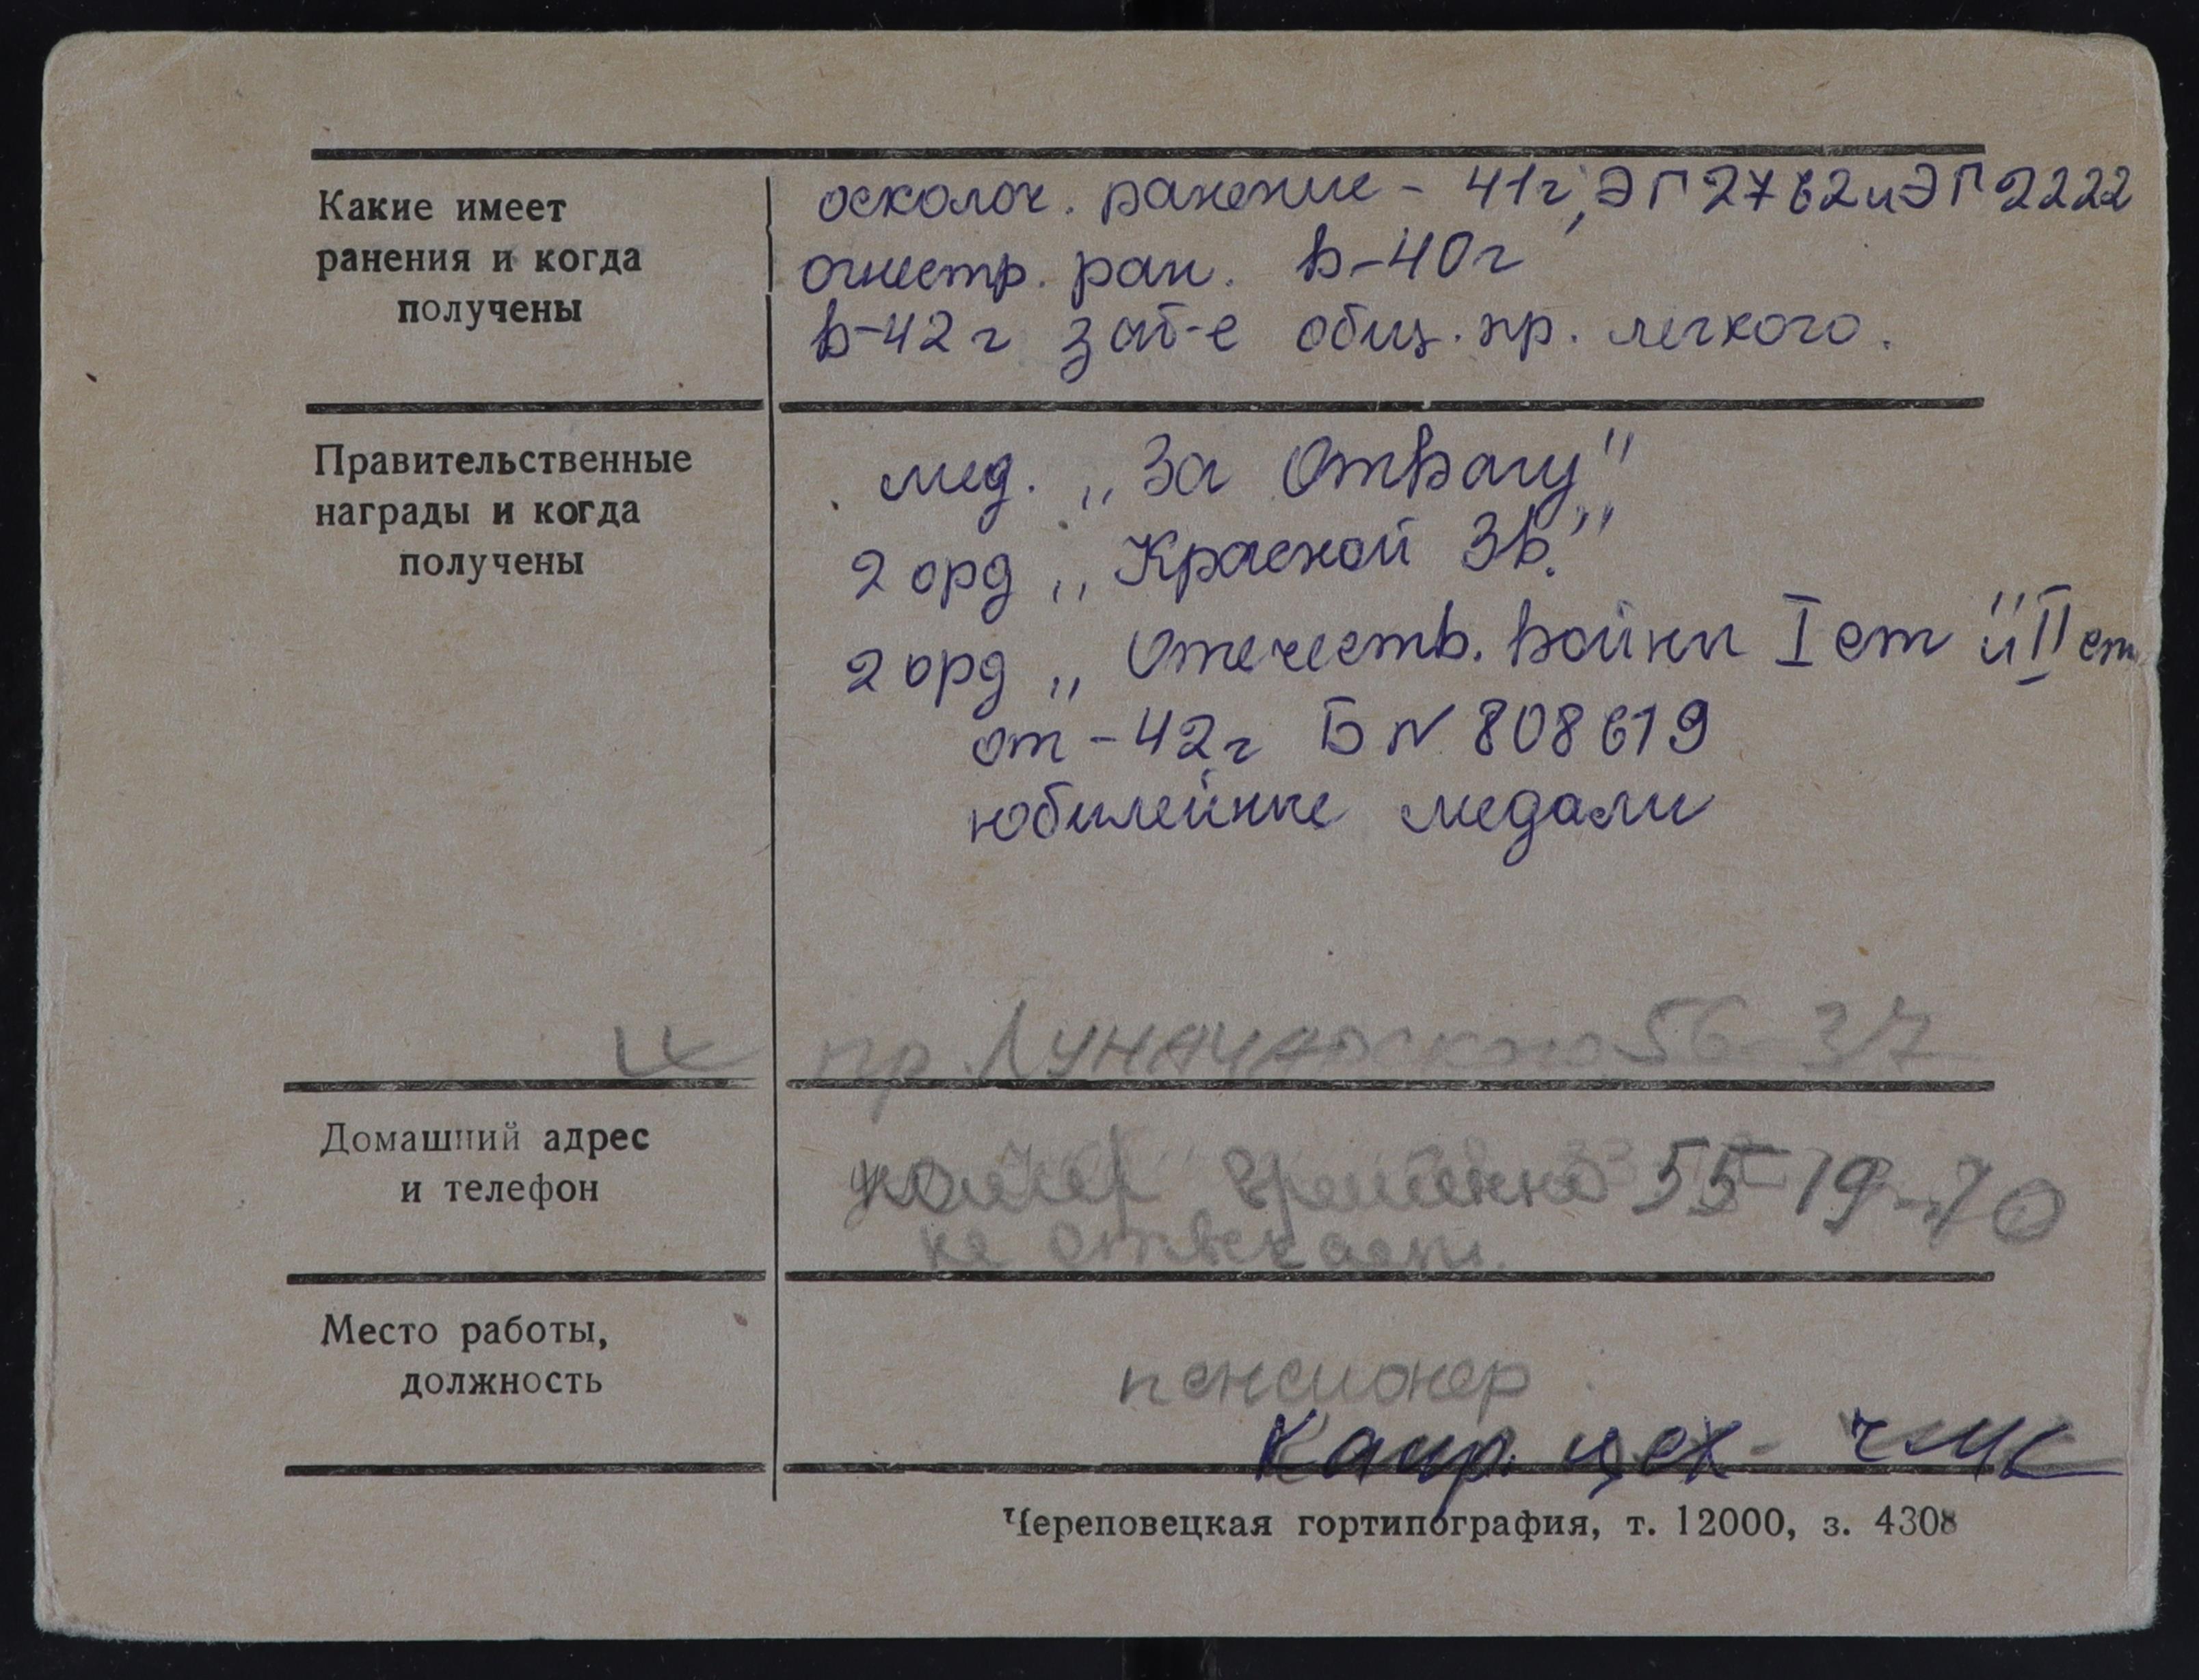 Какие имеет
ранения и когда
получены
осколоч. ранение - 41г, ЭГ 2762 и ЭГ 2222
огнестр. ран. в-40г
в-42г заб-е общ. пр. легкого.
Правительственные
награды и когда
получены
мед. „За Отвагу"
2 орд „Красной Зв."
2 орд „Отечеств. войны I ст" и II ст
от-42г Б N 808619
юбилейные медали
пр. Луначарского 56-37
Домашний адрес
и телефон
временно 55-19-70
не отвечает.
Место работы,
должность
пенсионер
цех - ЧМК
Череповецкая гортипография, т. 12000, з. 4308